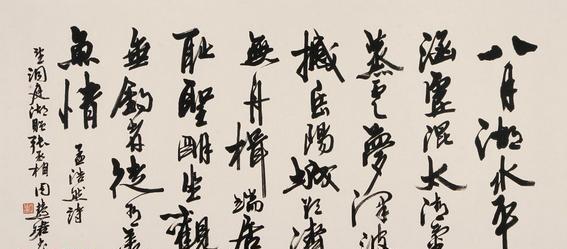 八月湖水平
涵虛混太清氣
蒸雲夢澤波
撼岳陽城欲濟
無舟楫端居
耻聖明坐觀
垂釣者徒有羨
魚情
孟浩然詩
望洞庭湖贈張丞相周慧珺